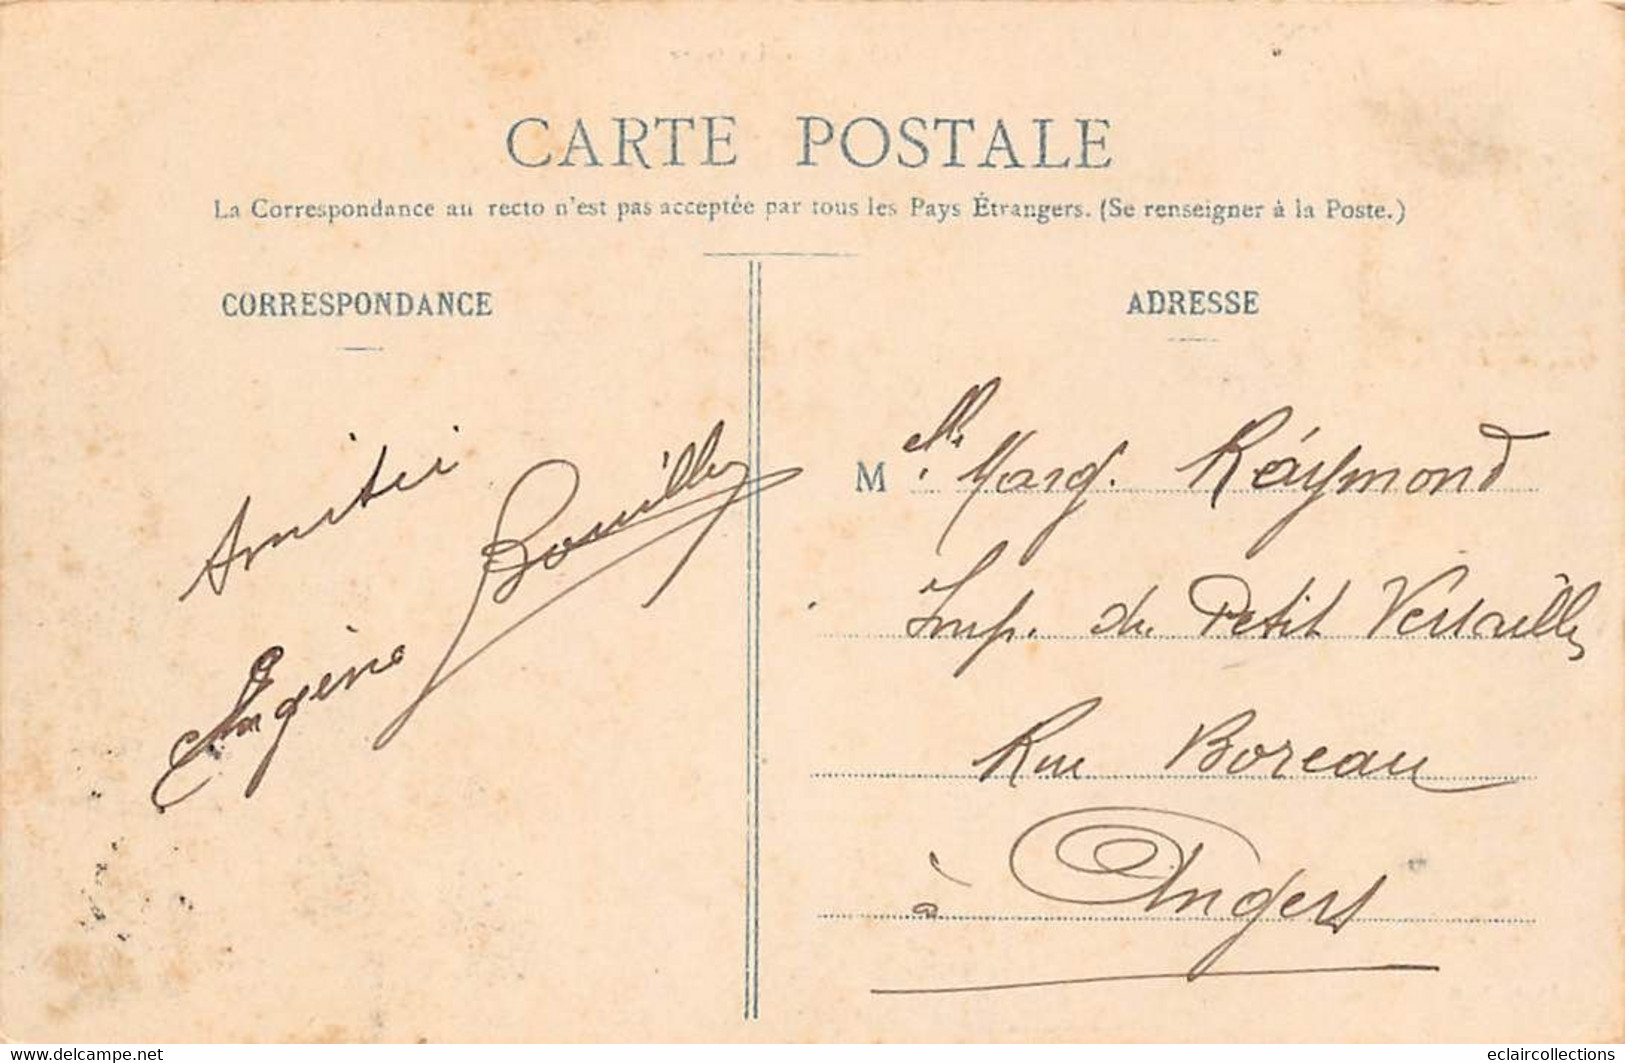 CARTE POSTALE
La Correspondance au recto n'est pas acceptée par tous les Pays Étrangers. (Se renseigner à la Poste.)
CORRESPONDANCE
Amitié
Bouilly
ADRESSE
Melle Marg. Raymond
Imp. du Petit Versailles
Rue Boreau
à Angers
www.delcampe.net
eclaircollections